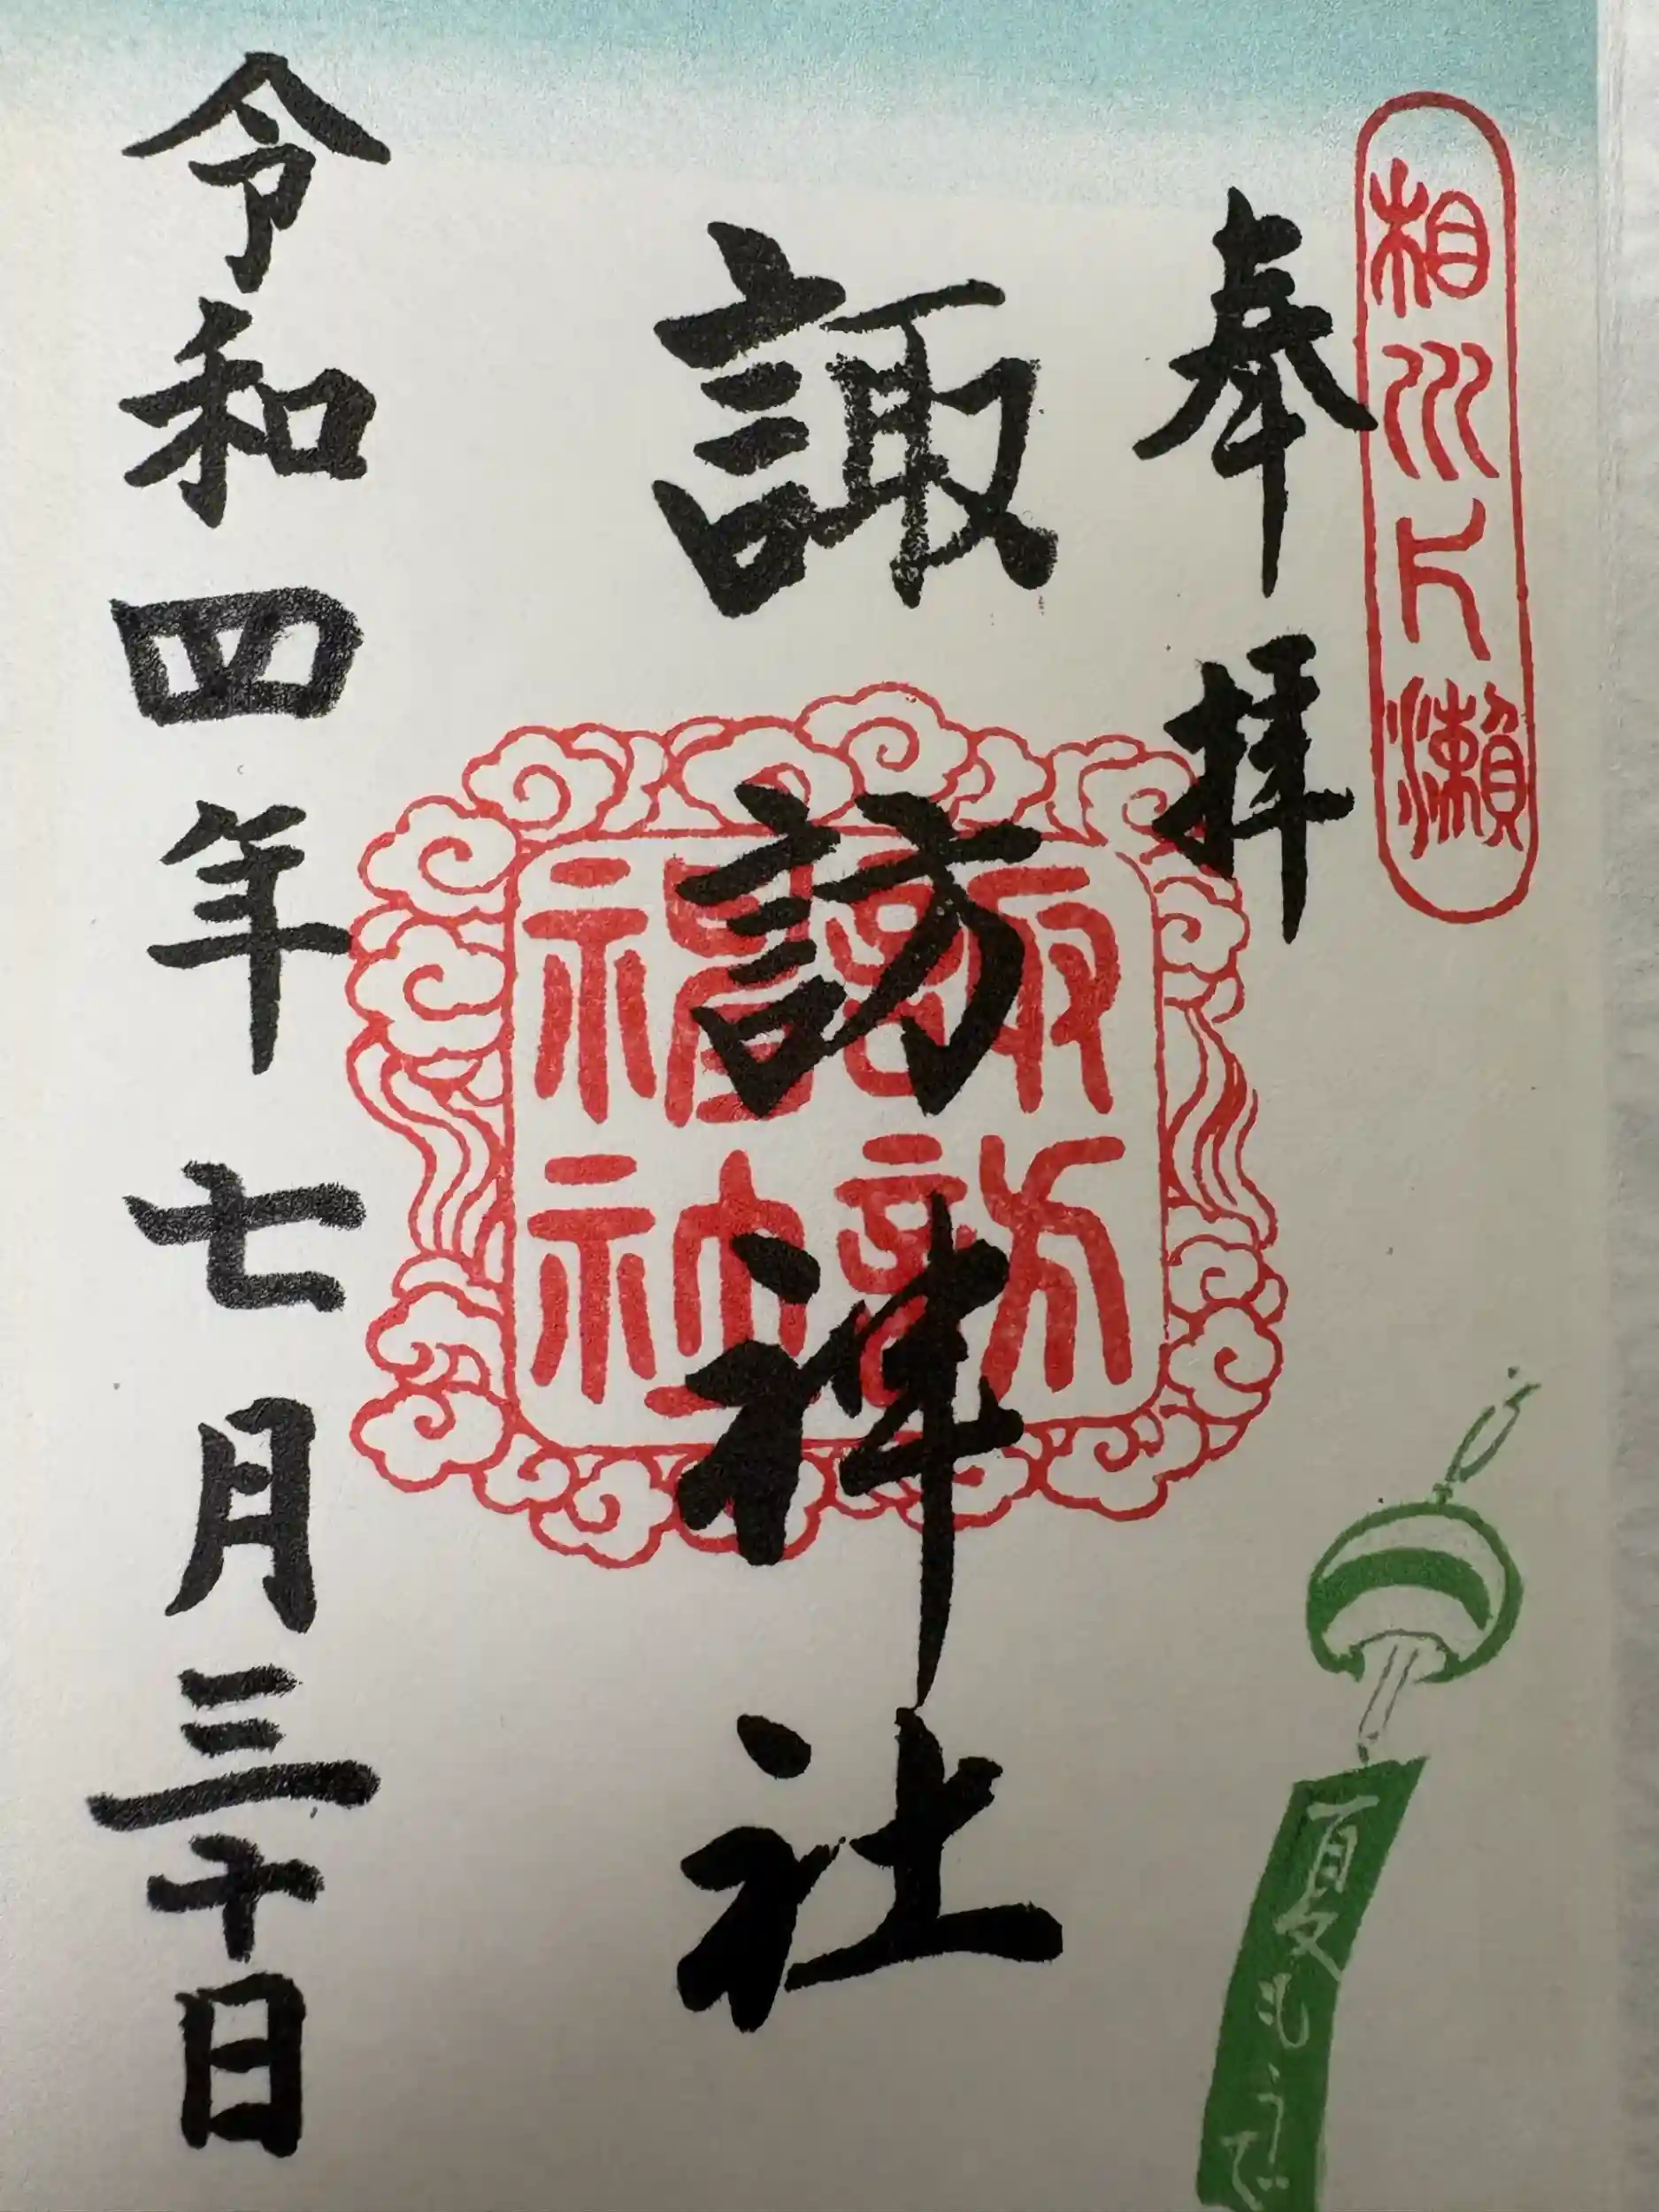 相州片瀨
奉拝
諏訪神社
令和四年七月三十日
夏もうで